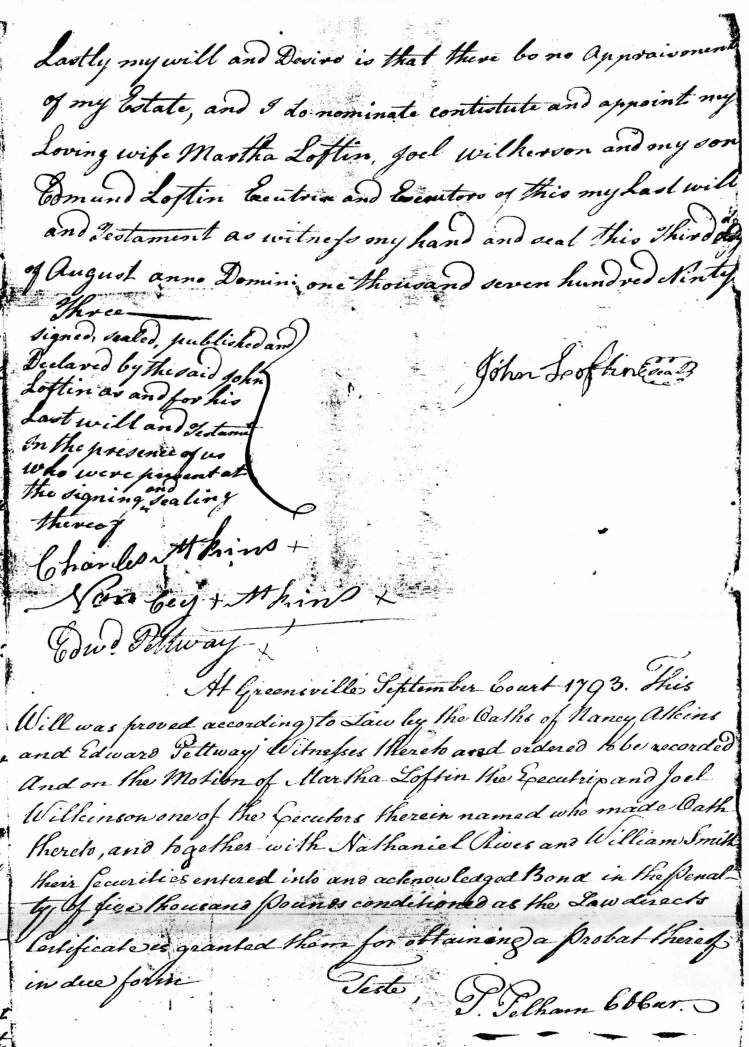 Lastly my will and Desire is that there be no Appraisement
of my Estate, and I do nominate contistute and appoint my
Loving wife Martha Loftin, Joel Wilkerson and my son
Edmund Loftin Executrix and Executors of this my Last will
and Testament as witness my hand and seal this Third day
of August anno Domini one thousand seven hundred Ninty
Three
signed, sealed, published and
Declared by the said John
Loftin as and for his
Last will and Testamt
In the presence of us
who were present at
the signing and sealing
thereof
John Loftin seal
Charles Atkins +
Nancey + Atkins +
Edwd Pettway +
At Greensville September Court 1793. This
Will was proved according to Law by the Oaths of Nancy Atkins
and Edward Pettway Witnesses thereto and ordered to be recorded
And on the Motion of Martha Loftin the Executrix and Joel
Wilkinson one of the Executors therein named who made Oath
thereto, and together with Nathaniel Rives and William Smith
their Securities entered into and acknowledged Bond in the Penal-
ty of five thousand Pounds conditioned as the Law directs
Certificate is granted them for obtaining a Probat thereof
in due form
Teste,
P. Pelham CCCur.